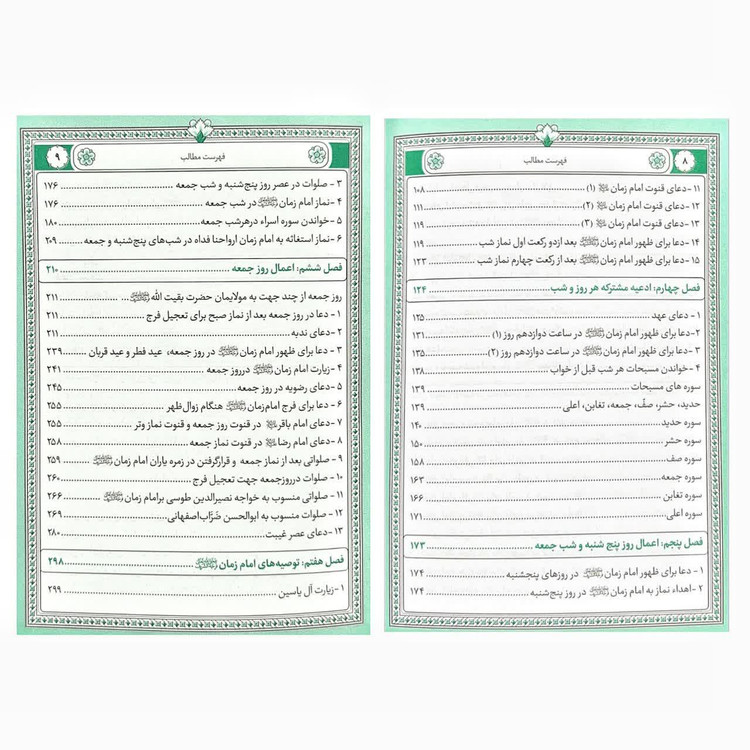 ۸
فهرست مطالب
۱۱- دعای قنوت امام زمان (۱) ۱۰۸
۱۲- دعای قنوت امام زمان (۲) ۱۱۱
۱۳- دعای قنوت امام زمان (۳) ۱۱۹
۱۴- دعا برای ظهور امام زمان بعد ازدو رکعت اول نماز شب ۱۱۹
۱۵- دعا برای ظهور امام زمان بعد از رکعت چهارم نماز شب ۱۲۳
فصل چهارم: ادعیه مشترکه هر روز و شب ۱۲۴
۱ - دعای عهد ۱۲۵
۲-دعا برای ظهور امام زمان در ساعت دوازدهم روز (۱) ۱۳۱
۳ - دعا برای ظهور امام زمان در ساعت دوازدهم روز (۲) ۱۳۵
۴- خواندن مسبحات هر شب قبل از خواب ۱۳۸
سوره های مسبحات ۱۳۹
حدید، حشر، صفّ، جمعه، تغابن، اعلی ۱۳۹
سوره حدید ۱۴۰
سوره حشر ۱۵۰
سوره صف ۱۵۸
سوره جمعه ۱۶۳
سوره تغابن ۱۶۶
سوره اعلی ۱۷۱
فصل پنجم: اعمال روز پنج شنبه و شب جمعه ۱۷۳
۱ - دعا برای ظهور امام زمان در روزهای پنجشنبه ۱۷۴
۲- اهداء نماز به امام زمان در روز پنج‌شنبه ۱۷۴
۹
فهرست مطالب
۳ - صلوات در عصر روز پنج‌شنبه و شب جمعه ۱۷۶
۴ - نماز امام زمان در شب جمعه ۱۷۶
۵ - خواندن سوره اسراء درهرشب جمعه ۱۸۰
۶ - نماز استغاثه به امام زمان ارواحنا فداه در شب‌های پنج‌شنبه و جمعه ۲۰۹
فصل ششم: اعمال روز جمعه ۲۱۰
روز جمعه از چند جهت به مولایمان حضرت بقیت الله ... ۲۱۱
۱ - دعا در روز جمعه بعد از نماز صبح برای تعجیل فرج ۲۱۱
۲ - دعای ندبه ۲۱۱
۳ - دعا برای ظهور امام زمان در روز جمعه، عید فطر و عید قربان ۲۳۹
۴ - زیارت امام زمان درروز جمعه ۲۴۱
۵ - دعای رضویه در روز جمعه ۲۴۵
۶ - دعا برای فرج امام‌زمان هنگام زوال‌ظهر ۲۵۵
۷ - دعای امام باقر در قنوت روز جمعه و قنوت نماز وتر ۲۵۵
۸ - دعای امام رضا در قنوت نماز جمعه ۲۵۸
۹ - صلواتی بعد از نماز جمعه و قرارگرفتن در زمره یاران امام زمان ۲۵۹
۱۰ - صلوات درروزجمعه جهت تعجیل فرج ۲۶۰
۱۱ - صلواتی منسوب به خواجه نصیرالدین طوسی برامام زمان ۲۶۶
۱۲ - صلوات منسوب به ابوالحسن ضَرّاب‌اصفهانی ۲۶۹
۱۳ - دعای عصر غیبت ۲۸۰
فصل هفتم: توصیه‌های امام زمان ۲۹۸
۱ - زیارت آل یاسین ۲۹۹